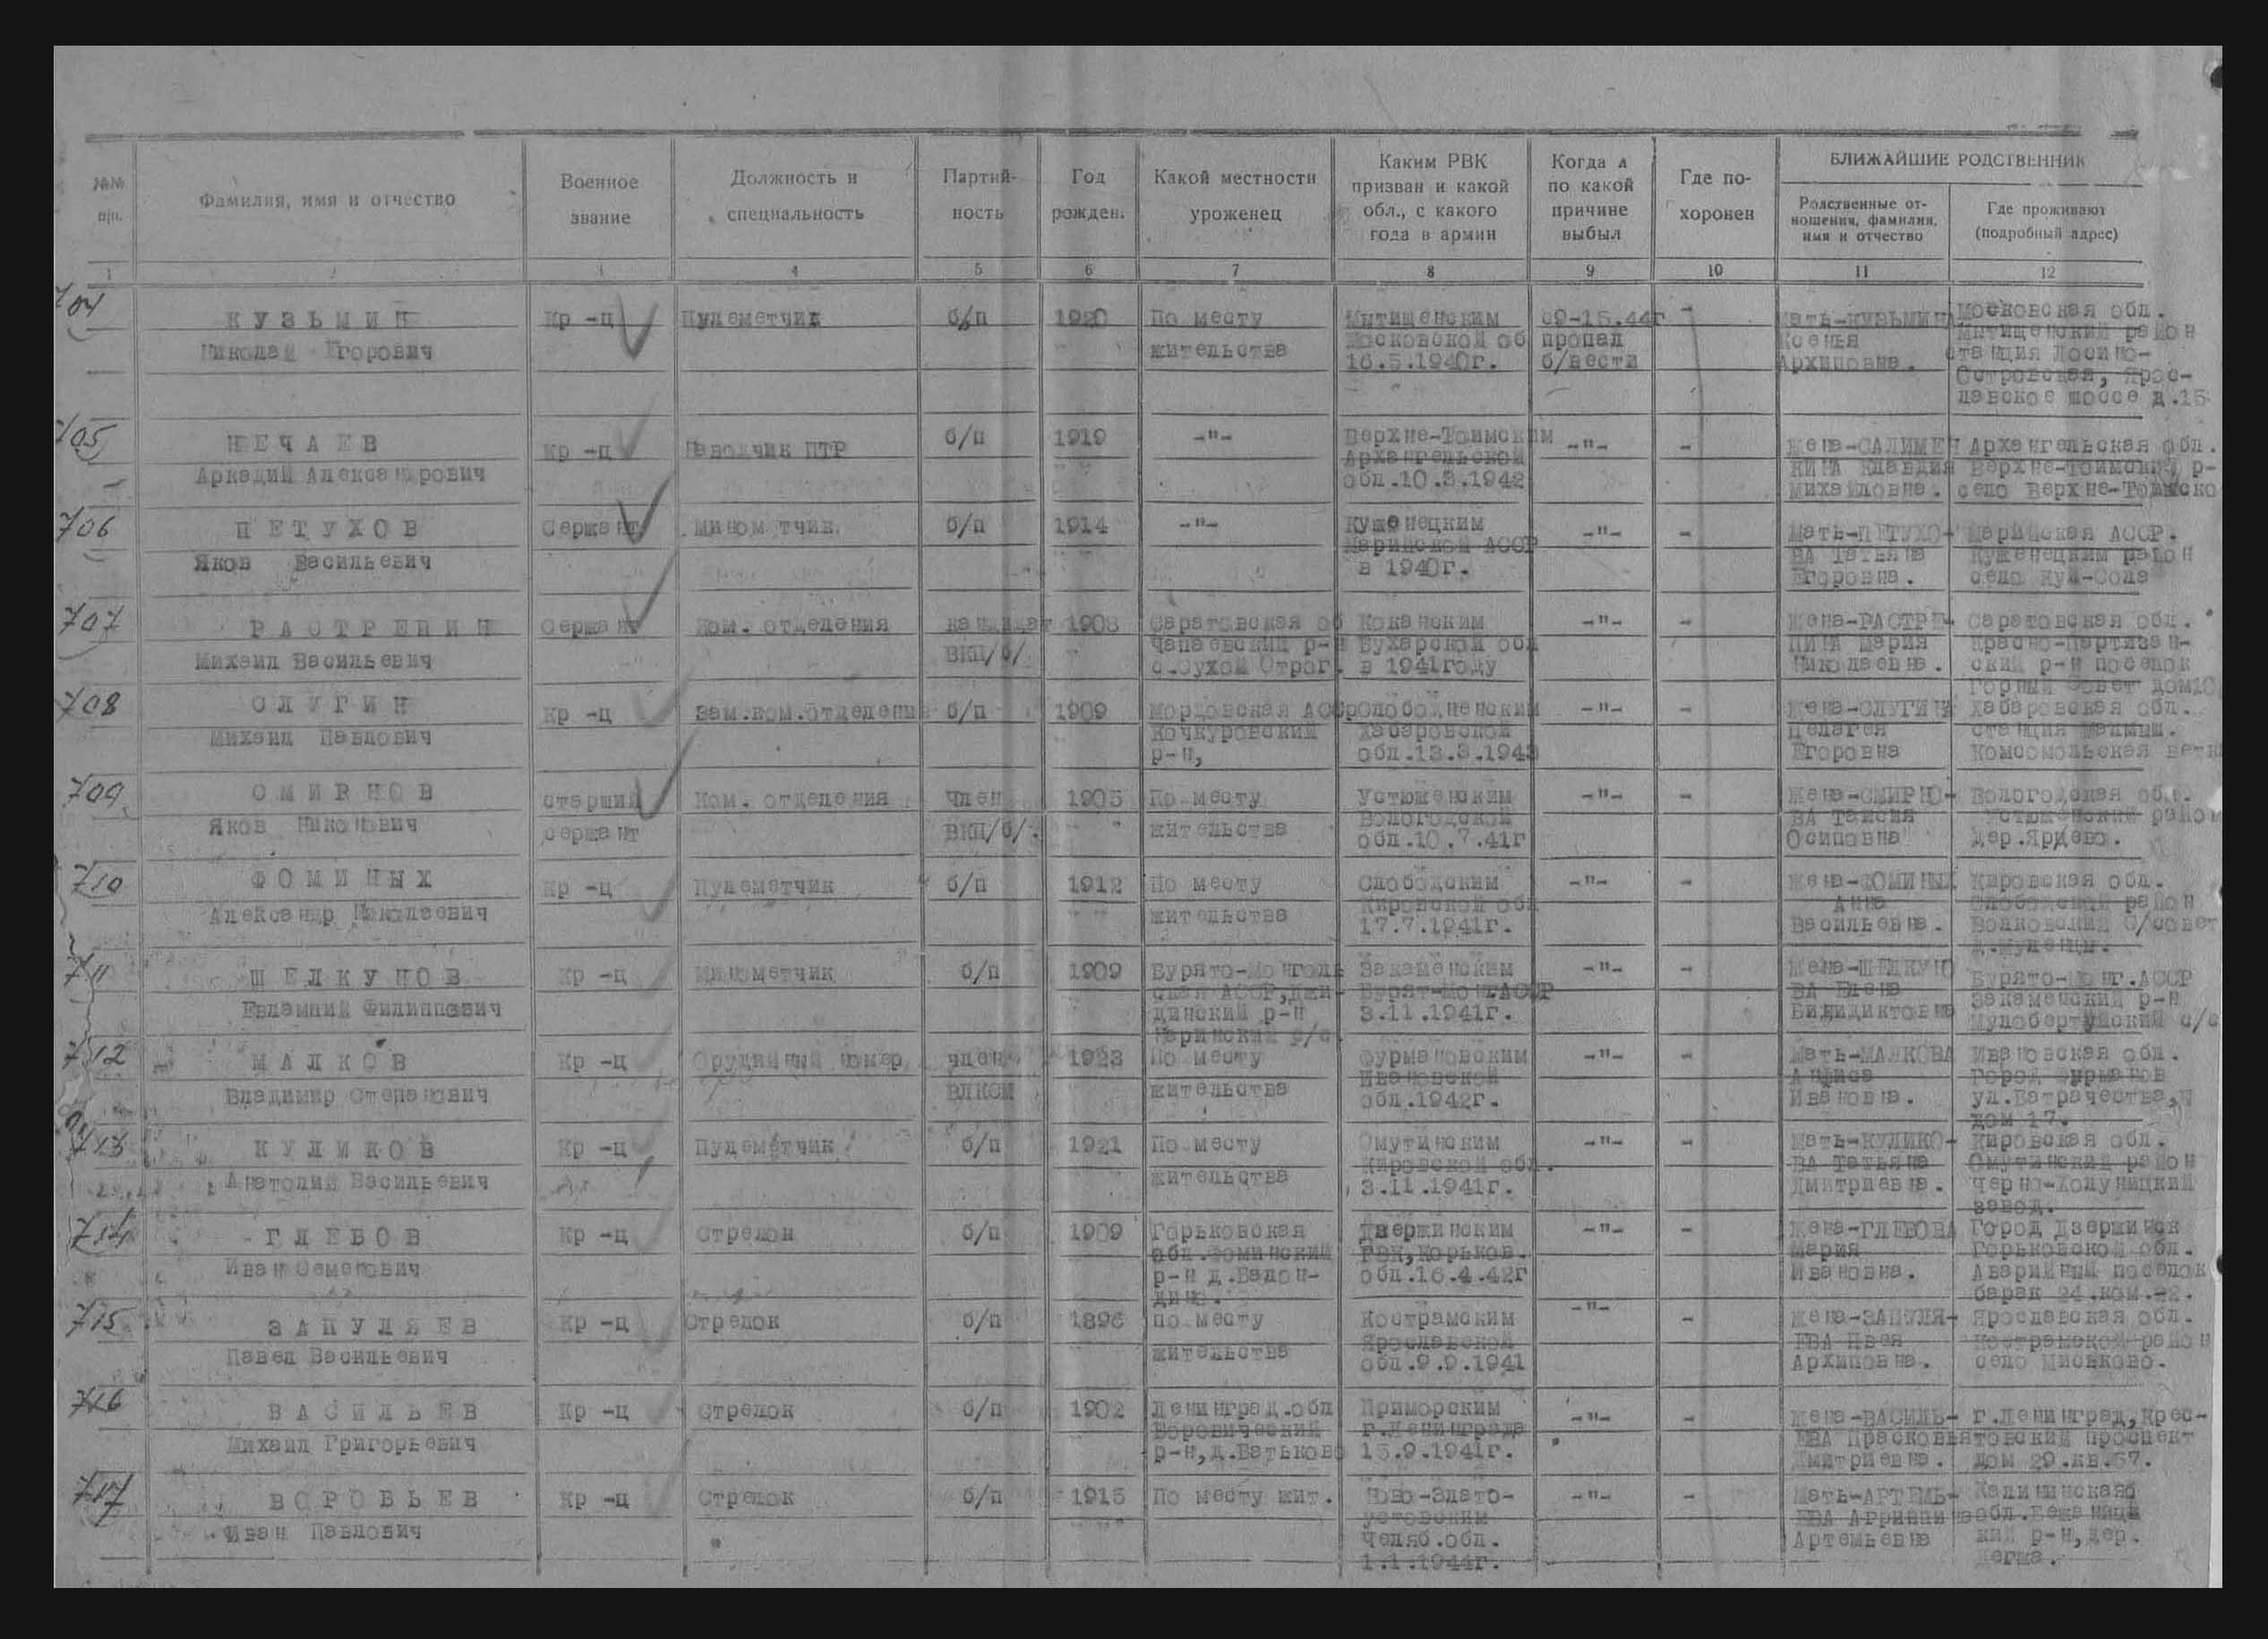 №№ п/п.
Фамилия, имя и отчество
Военное звание
Должность и специальность
Партий-ность
Год рожден.
Какой местности уроженец
Каким РВК призван и какой обл., с какого года в армии
Когда и по какой причине выбыл
Где по-хоронен
БЛИЖАЙШИЕ РОДСТВЕННИК
Родственные от-ношения, фамилия, имя и отчество
Где проживают (подробный адрес)
1 2 3 4 5 6 7 8 9 10 11 12
704 КУЗЬМИН Кр-ц Пулеметчик б/п 1920 По месту Мытищенским 09-15.44г - Мать-КУЗЬМИНА Московская обл.
Николай Егорович жительства Московской об пропал Ксенья Мытищенский район
16.5.1940г. б/вести Архиповна. станция Лосино-
Островская, Ярос-
лавское шоссе д.15
705 НЕЧАЕВ Кр-ц Наводчик ПТР б/п 1919 -"- Верхне-Тоимским -"- - Жена-САЛИМЕН Архангельская обл.
Аркадий Александрович Архангельской КИНА Клавдия Верхне-Тоимский р-
обл.10.3.1942 Михайловна. село Верхне-Тоимско
706 ПЕТУХОВ Сержант Миномтчик б/п 1914 -"- Куженецким -"- - Мать-ПЕТУХО- Марийская АССР.
Яков Васильевич Марийской АССР ВА Татьяна Куженецким район
в 1940г. Егоровна. село Куж-Сола
707 РАСТРЕПИН Сержант Ком. отделения кандидат 1908 Саратовская об Коканским -"- - Жена-РАСТРЕ- Саратовская обл.
Михаил Васильевич ВКП/б/ Чапаевский р-н Бухарской обл ПИНА Мария Красно-Партизан-
с.Сухой Отрог. в 1941году Николаевна. ский р-н поселок
Горный Совет дом10
708 СЛУГИН Кр-ц Зам.ком.отделения б/п 1909 Мордовская АССР Слободненским -"- - Жена-СЛУГИНА Хабаровская обл.
Михаил Павлович Кочкуровский Хабаровской Пелагея станция Малмыж.
р-н, обл.13.3.1943 Егоровна Комсомольская ветк
709 СМИРНОВ старший Ком. отделения член 1905 По месту Устюженским -"- - Жена-СМИРНО- Вологодская обл.
Яков Никонович сержант ВКП/б/. жительства Вологодской ВА Таисия Устюженский район
обл.10.7.41г Осиповна дер.Ярцево.
710 ФОМИНЫХ Кр-ц Пулеметчик б/п 1912 По месту Слободским -"- - Жена-ФОМИНЫХ Кировская обл.
Александр Николаевич жительства Кировской обл Анна Слободской район
17.7.1941г. Васильевна. Волковский с/совет
711 ШЕЛКУНОВ Кр-ц Минометчик б/п 1909 Бурято-Монголь Закаменским -"- - Жена-ШЕЛКУНО Бурято-Монг.АССР
Евлампий Филиппович ская АССР,Джи- Бурят-МонгАССР ВА Елена Закаменский р-н
динский р-н 3.11.1941г. Бинидиктовна с/с
Наринский с/с.
712 МАЛКОВ Кр-ц Орудийный номер член 1923 По месту Фурмановским -"- - Мать-МАЛКОВА Ивановская обл.
Владимир Степанович ВЛКСМ жительства Ивановской Анфиса Город Фурманов
обл.1942г. Ивановна. ул.Батрачества,
дом 17.
713 КУЛИКОВ Кр-ц Пулеметчик б/п 1921 По месту Омутинским -"- - Мать-КУЛИКО- Кировская обл.
Анатолий Васильевич жительства Кировской обл. ВА Татьяна Омутинский район
3.11.1941г. Дмитриевна. Черно-Холуницкий
завод.
714 ГЛЕБОВ Кр-ц Стрелок б/п 1909 Горьковская Дзержинским -"- - Жена-ГЛЕБОВА Город Дзержинск
Иван Семенович обл.Фоминский РВК,Горьков. Мария Горьковской обл.
р-н д.Валон- обл.16.4.42г Ивановна. Аварийный поселок
дино. барак 24.ком.22.
715 ЗАПУЛЯЕВ Кр-ц Стрелок б/п 1896 по месту Костромским -"- - Жена-ЗАПУЛЯ- Ярославская обл.
Павел Васильевич жительства Ярославской ЕВА Костромской район
обл.9.9.1941 Архиповна. село Миськово.
716 ВАСИЛЬЕВ Кр-ц Стрелок б/п 1902 Ленинград.обл Приморским -"- - Жена-ВАСИЛЬ- г.Ленинград,Крес-
Михаил Григорьевич Боровический г.Ленинграда ЕВА Прасковья товский проспект
р-н,д.Батьково 15.9.1941г. Дмитриевна. дом 29.кв.67.
717 ВОРОБЬЕВ Кр-ц Стрелок б/п 1915 По месту жит. Ново-Злато- -"- - Мать-АРТЕМЬ- Калининская
Иван Павлович устовским ЕВА Агрипина обл.Бежаниц
Челяб.обл. Артемьевна кий р-н,дер.
1.1.1944г.